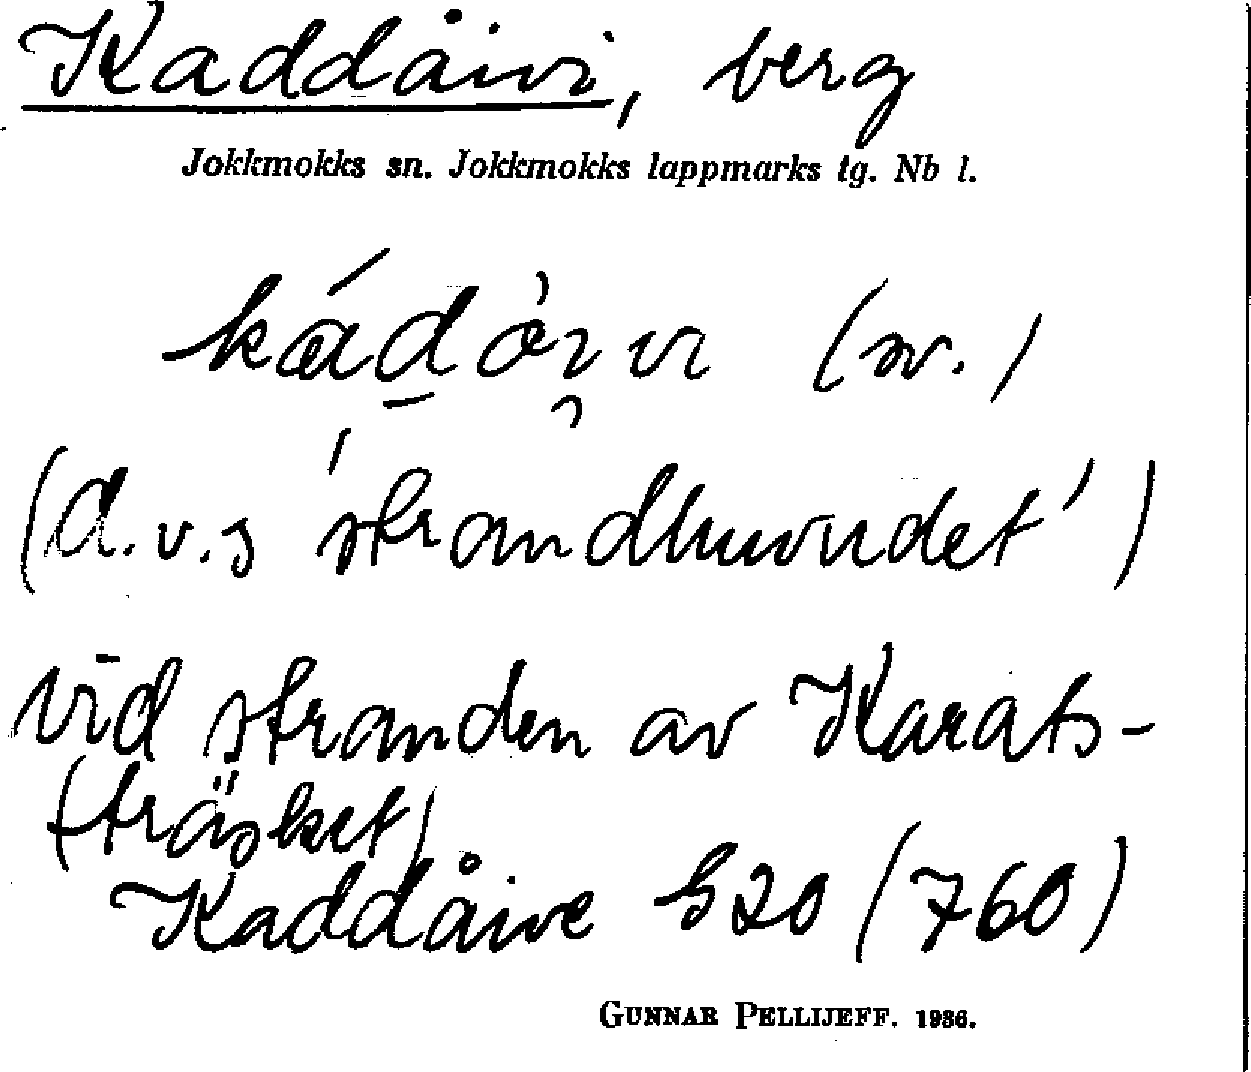 Kaddåivi, berg
Jokkmokks sn. Jokkmokks lappmarks tg. Nb l.
(sv.)
(d.v.s 'strandhuvudet')
vid stranden av Karats-
(träsket)
Kaddåive 520 (760)
GUNNAR PELLIJEFF. 1936.